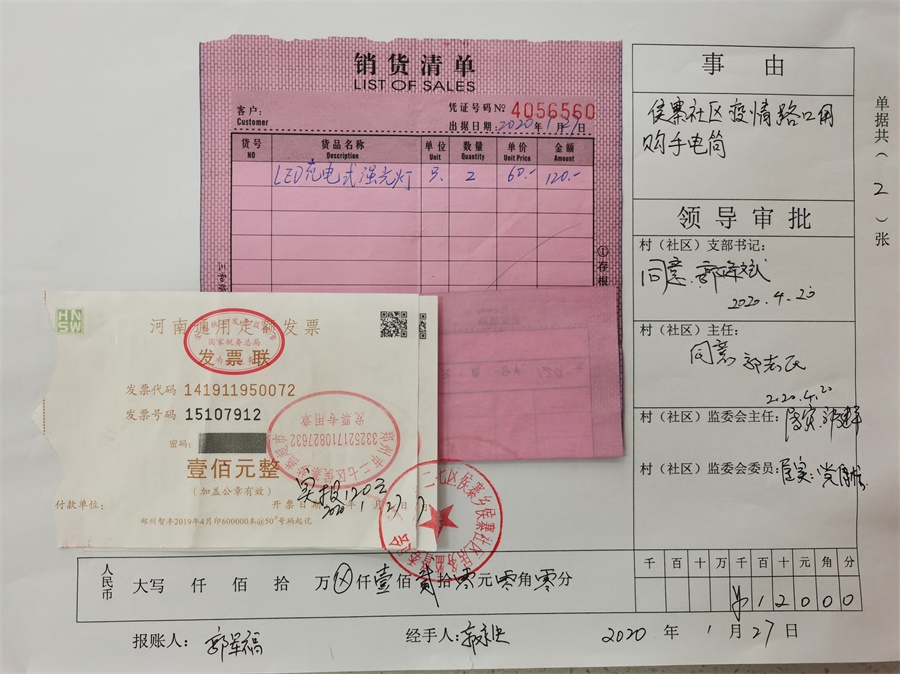 销货清单
LIST OF SALES
客户:
Customer
凭证号码 № 4056560
出据日期: 2020年1月27日
货号 货品名称 单位 数量 单价 金额
NO Description Unit Quantity Unit Price Amount
LED充电式强光灯 只 2 60.- 120.-
①存根
事 由
侯寨社区疫情路口用
购手电筒
单据共(2)张
领导审批
村(社区)支部书记:
同意
2020.4.20
村(社区)主任:
同意 郭志民
2020.4.20
村(社区)监委会主任:
属实
村(社区)监委会委员:
属实
HN
SW
河南通用定额发票
国家税务总局
发票联
发票代码 141911950072
发票号码 15107912
密码:
壹佰元整
(加盖公章有效)
实报120元
付款单位:
开票日期 2020年1月27日
郑州智丰2019年4月印600000本@50#号码起讫
发票专用章
人民币 大写 仟 佰 拾 万⊗仟壹佰贰拾零元零角零分
千 百 十 万 千 百 十 元 角 分
¥12000
报账人: 郭军福
经手人:
2020 年 1 月 27 日